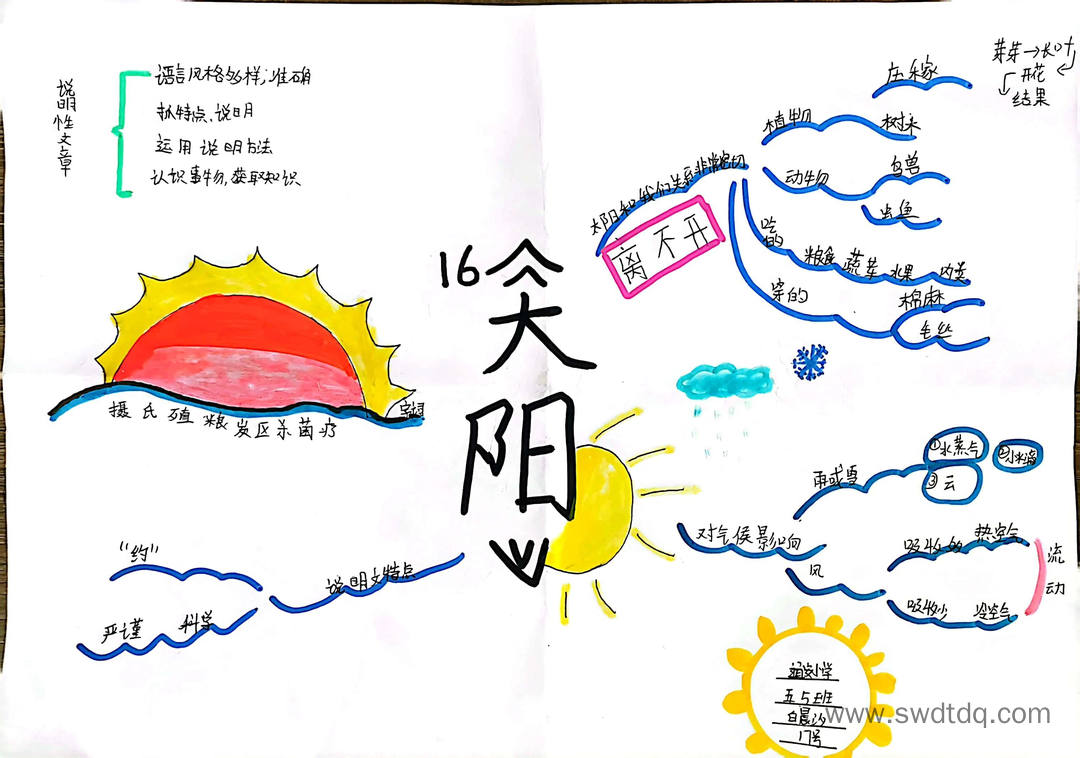 说明性文章
语言风格多样，准确
抓特点、说明
运用说明方法
认识事物，获取知识
16
太
阳
摄氏殖粮炭区杀菌疗
"约"
严谨 科学
说明文特点
太阳和我们关系非常密切
离不开
植物
庄稼
树木
芽芽→长叶
开花
结果
动物
鸟兽
虫鱼
吃的
粮食 蔬菜 水果 肉类
穿的
棉麻
毛丝
对气候影响
雨或雪
①水蒸气
②小水滴
③云
风
吸收多 热空气
吸收少 冷空气
流动
五5班
17号
www.swdtdq.com